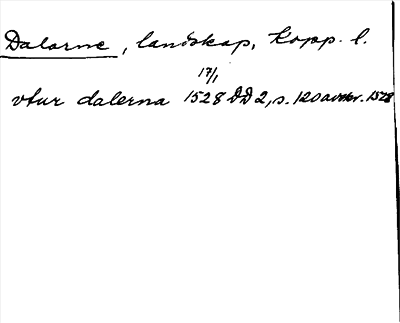 Dalarne, landskap, Kopp. l.
17/1
vtur dalerna 1528 DD 2, s. 120 avskr. 1528